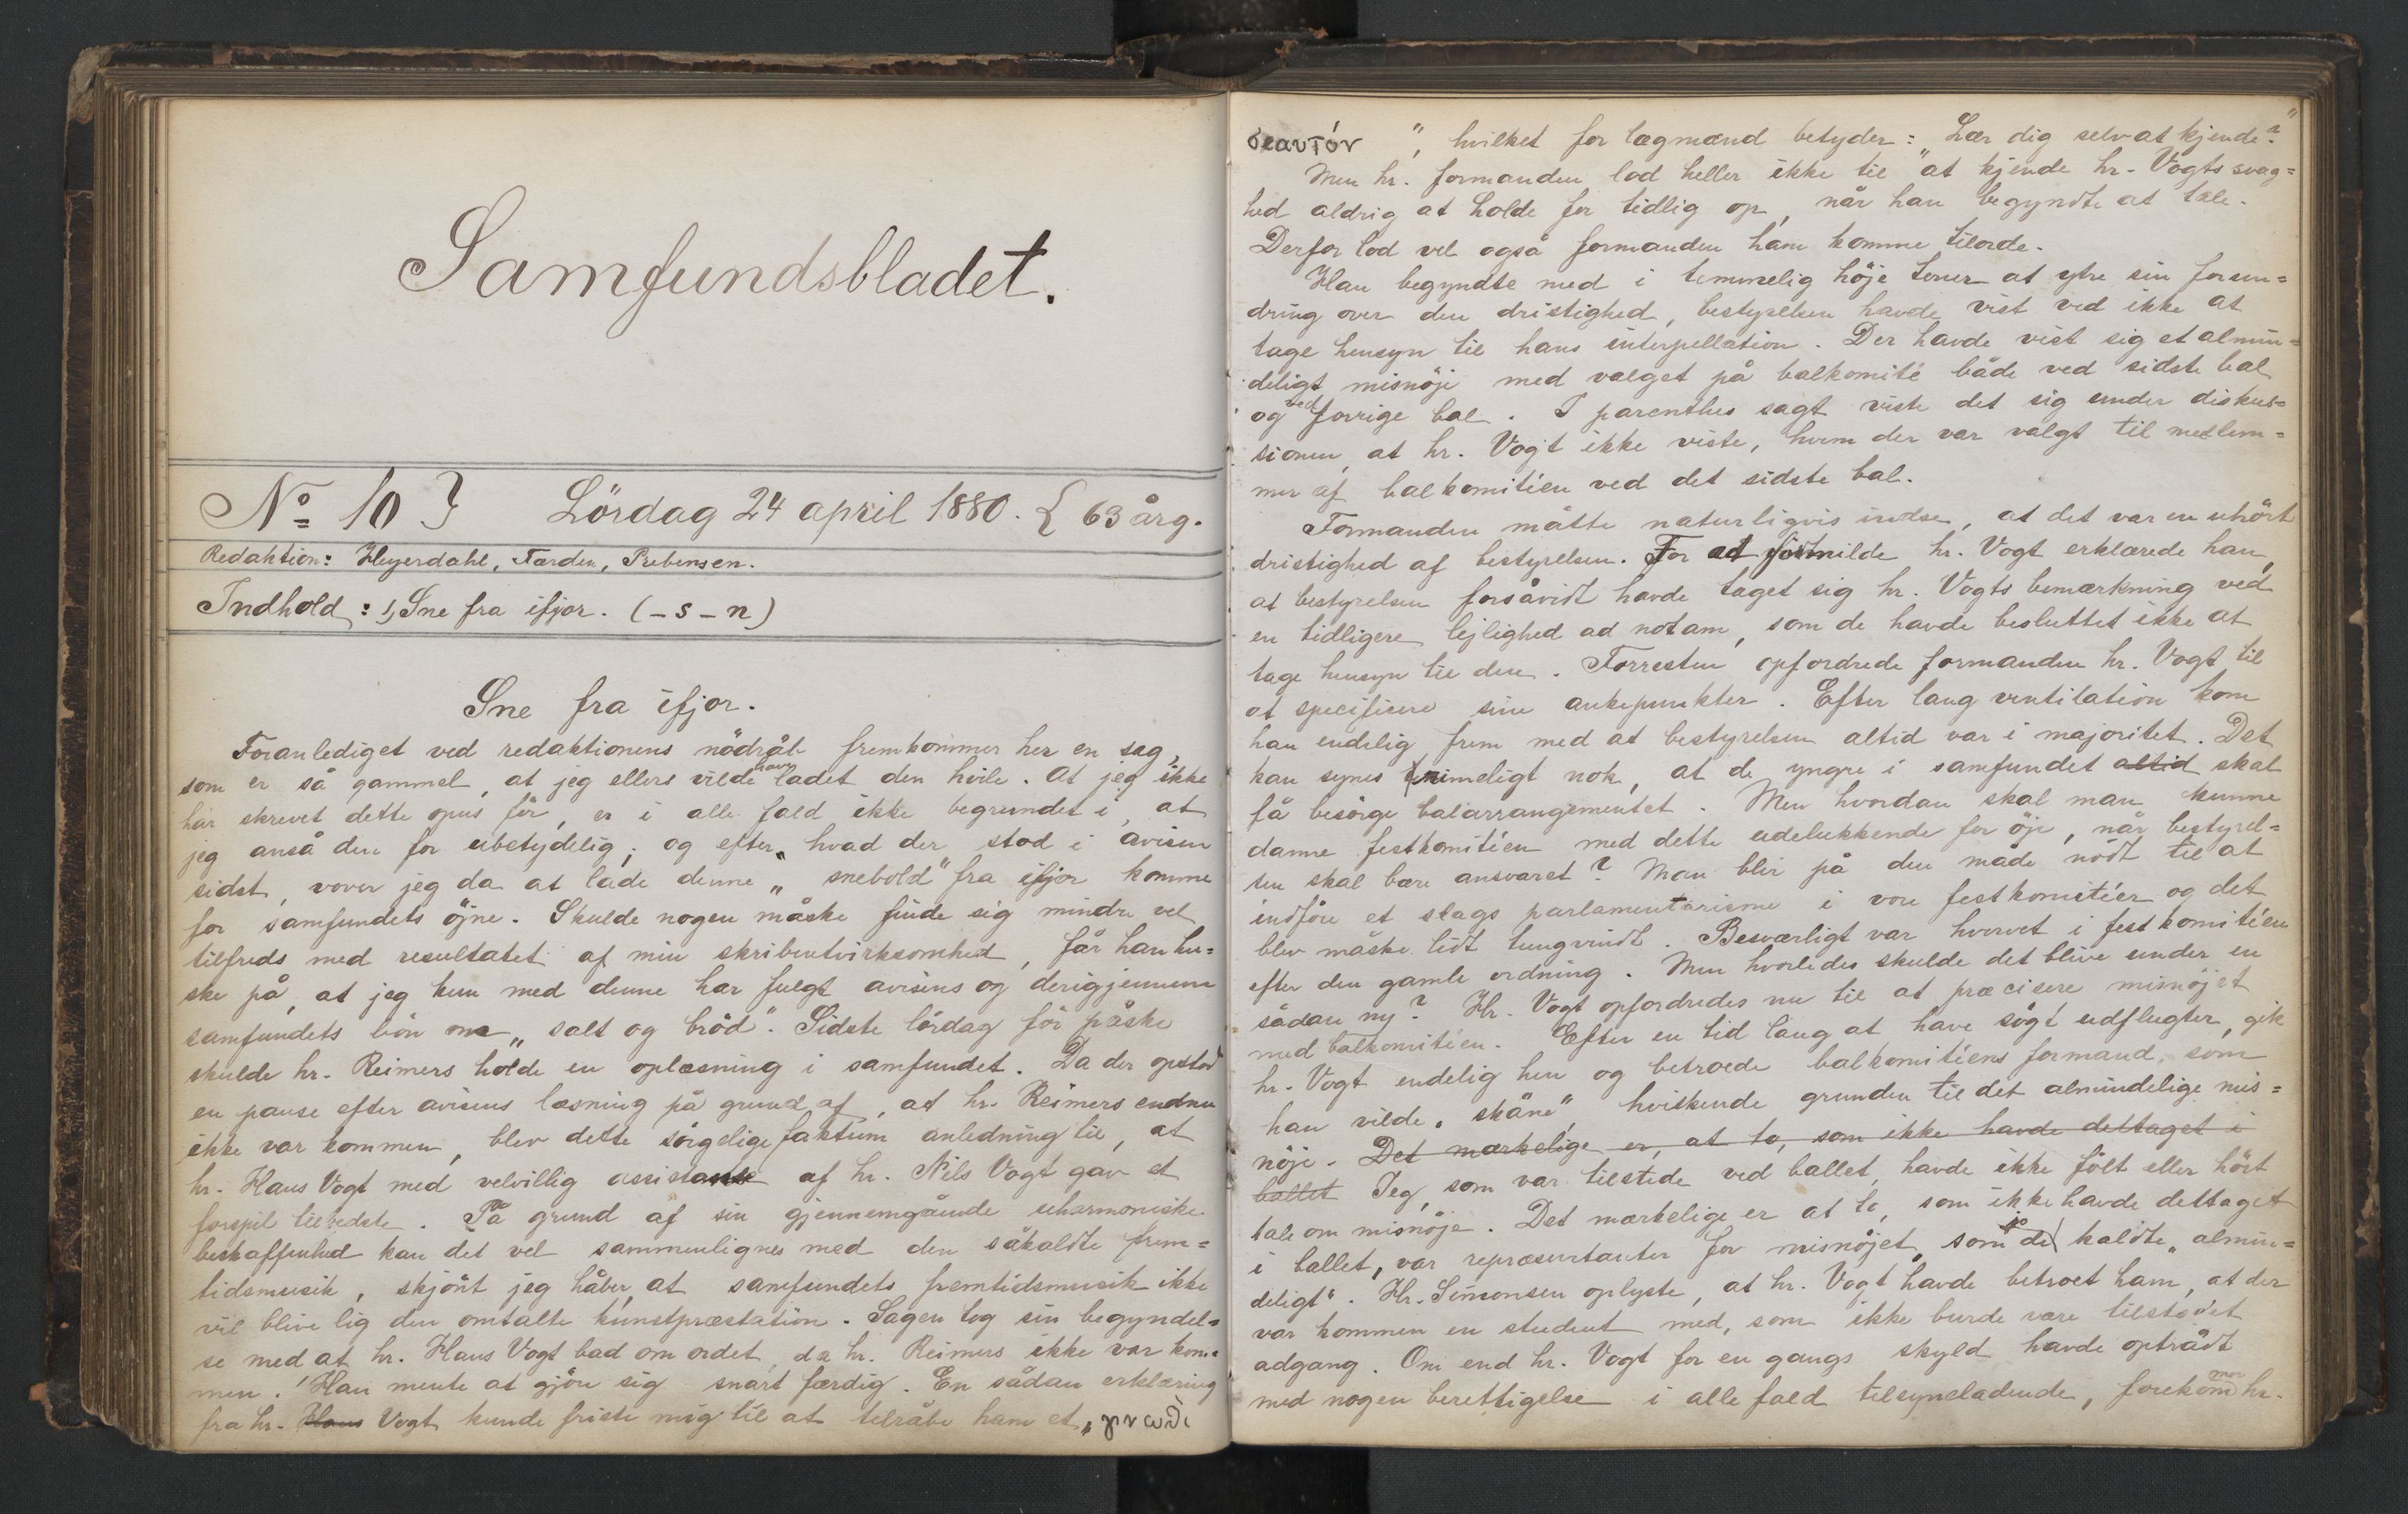 Samfundsbladet.
No 10 } Lördag 24 april 1880. { 63 årg.
Redaktion: Heyerdahl, Færden, Prebensen.
Indhold: 1, Sne fra ifjor. (-s-n)
Sne fra ifjor.
Foranlediget ved redaktionens nödråb fremkommer her en sag,
som er så gammel, at jeg ellers vilde have ladet den hvile. At jeg ikke
har skrevet dette opus för, er i alle fald ikke begrundet i, at
jeg anså den for ubetydelig; og efter, hvad der stod i avisen
sidst, vover jeg da at lade denne „snebold“ fra ifjor komme
for samfundets öjne. Skulde nogen måske finde sig mindre vel
tilfreds med resultatet af min skribentvirksomhed, får han hu=
ske på, at jeg kun med denne har fulgt avisens og derigjennem
samfundets bön om „salt og bröd“. Sidste lördag för påske
skulde hr. Reimers holde en oplæsning i samfundet. Da der opstod
en pause efter avisens læsning på grund af, at hr. Reimers endnu
ikke var kommen, blev dette sörgelige faktum anledning til, at
hr. Hans Vogt med velvillig assistanse af hr. Nils Vogt gav et
forspil tilbedste. På grund af sin gjennemgående uharmoniske
beskaffenhed kan det vel sammenlignes med den såkaldte frem=
tidsmusik, skjönt jeg håber, at samfundets fremtidsmusik ikke
vil blive lig den omtalte kunstpræstation. Sagen tog sin begyndel=
se med at hr. Hans Vogt bad om ordet, da hr. Reimers ikke var kom=
men. Han mente at gjöre sig snart færdig. En sådan erklæring
fra hr. Hans Vogt kunde friste mig til at tilråbe ham et „γνωθι
σεαυτόν“, hvilket for lægmænd betyder: „Lær dig selv at kjende“.
Men hr. formanden lod heller ikke til at kjende hr. Vogts svag=
hed aldrig at holde for tidlig op, når han begyndte at tale.
Derfor lod vel også formanden ham komme tilorde.
Han begyndte med i temmelig höje toner at ytre sin forun=
dring over den dristighed, bestyrelsen havde vist ved ikke at
tage hensyn til hans interpellation. Der havde vist sig et almin=
deligt misnöje med valget på balkomité både ved sidste bal
og ved forrige bal. I parenthes sagt viste det sig under diskus=
sionen, at hr. Vogt ikke viste, hvem der var valgt til medlem=
mer af balkomitéen ved det sidste bal.
Formanden måtte naturligvis indse, at det var en uhört
dristighed af bestyrelsen. For at formilde hr. Vogt erklærede han,
at bestyrelsen forsåvidt havde taget sig hr. Vogts bemærkning ved
en tidligere lejlighed ad notam, som de havde besluttet ikke at
tage hensyn til den. Forresten opfordrede formanden hr. Vogt til
at specificere sine ankepunkter. Efter lang ventilation kom
han endelig frem med at bestyrelsen altid var i majoritet. Det
kan synes rimeligt nok, at de yngre i samfundet altid skal
få besörge balarrangementet. Men hvordan skal man kunne
danne festkomitéen med dette udelukkende for öje, når bestyrel=
sen skal bære ansvaret? Man blir på den måde nödt til at
indföre et slags parlamentarisme i vore festkomitéer og det
blev måske lidt tungvindt. Besværligt var hvervet i festkomitéen
efter den gamle ordning. Men hvorledes skulde det blive under en
sådan ny? Hr. Vogt opfordredes nu til at præcisere misnöjet
med balkomitéen. Efter en tid lang at have sögt udflugter, gik
hr. Vogt endelig hen og betroede balkomitéens formand, som
han vilde „skåne“, hviskende grunden til det almindelige mis=
nöje. Det mærkelige er, at to, som ikke havde deltaget i
ballet Jeg, som var tilstede ved ballet, havde ikke fölt eller hört
tale om misnöje. Det mærkelige er at to, som ikke havde deltaget
i ballet, var repræsentanter for misnöjet, som så de kaldte „almin=
deligt“. Hr. Simonsen oplyste, at hr. Vogt havde betroet ham, at der
var kommen en student med, som ikke burde være tilstedet
adgang. Om end hr. Vogt for en gangs skyld havde optrådt
med nogen berettigelse i alle fald tilsyneladende, forekommer hr.